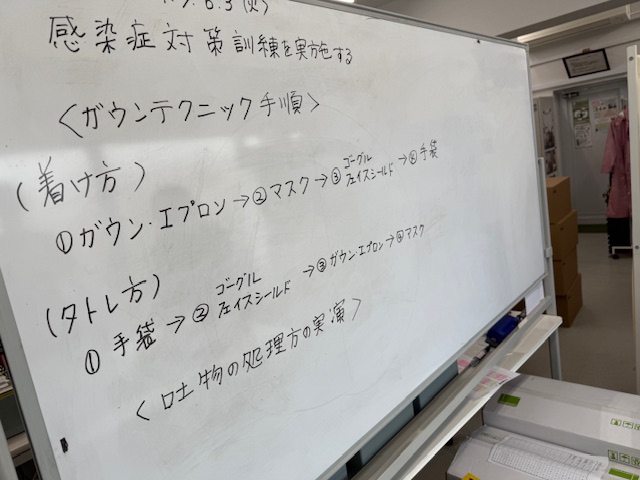 R7.6.3(火)
感染症対策訓練を実施する
〈ガウンテクニック手順〉
(着け方)
①ガウン・エプロン→②マスク→③ゴーグル フェイスシールド→④手袋
(外し方)
①手袋→②ゴーグル フェイスシールド→③ガウン・エプロン→④マスク
〈吐物の処理方の実演〉